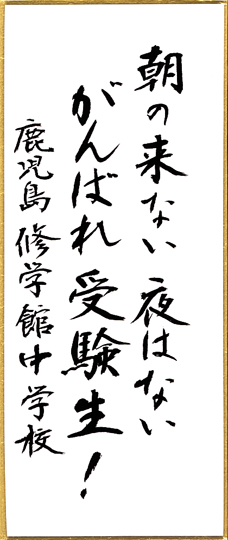 朝の来ない 夜はない
がんばれ 受験生！
鹿児島修学館中学校